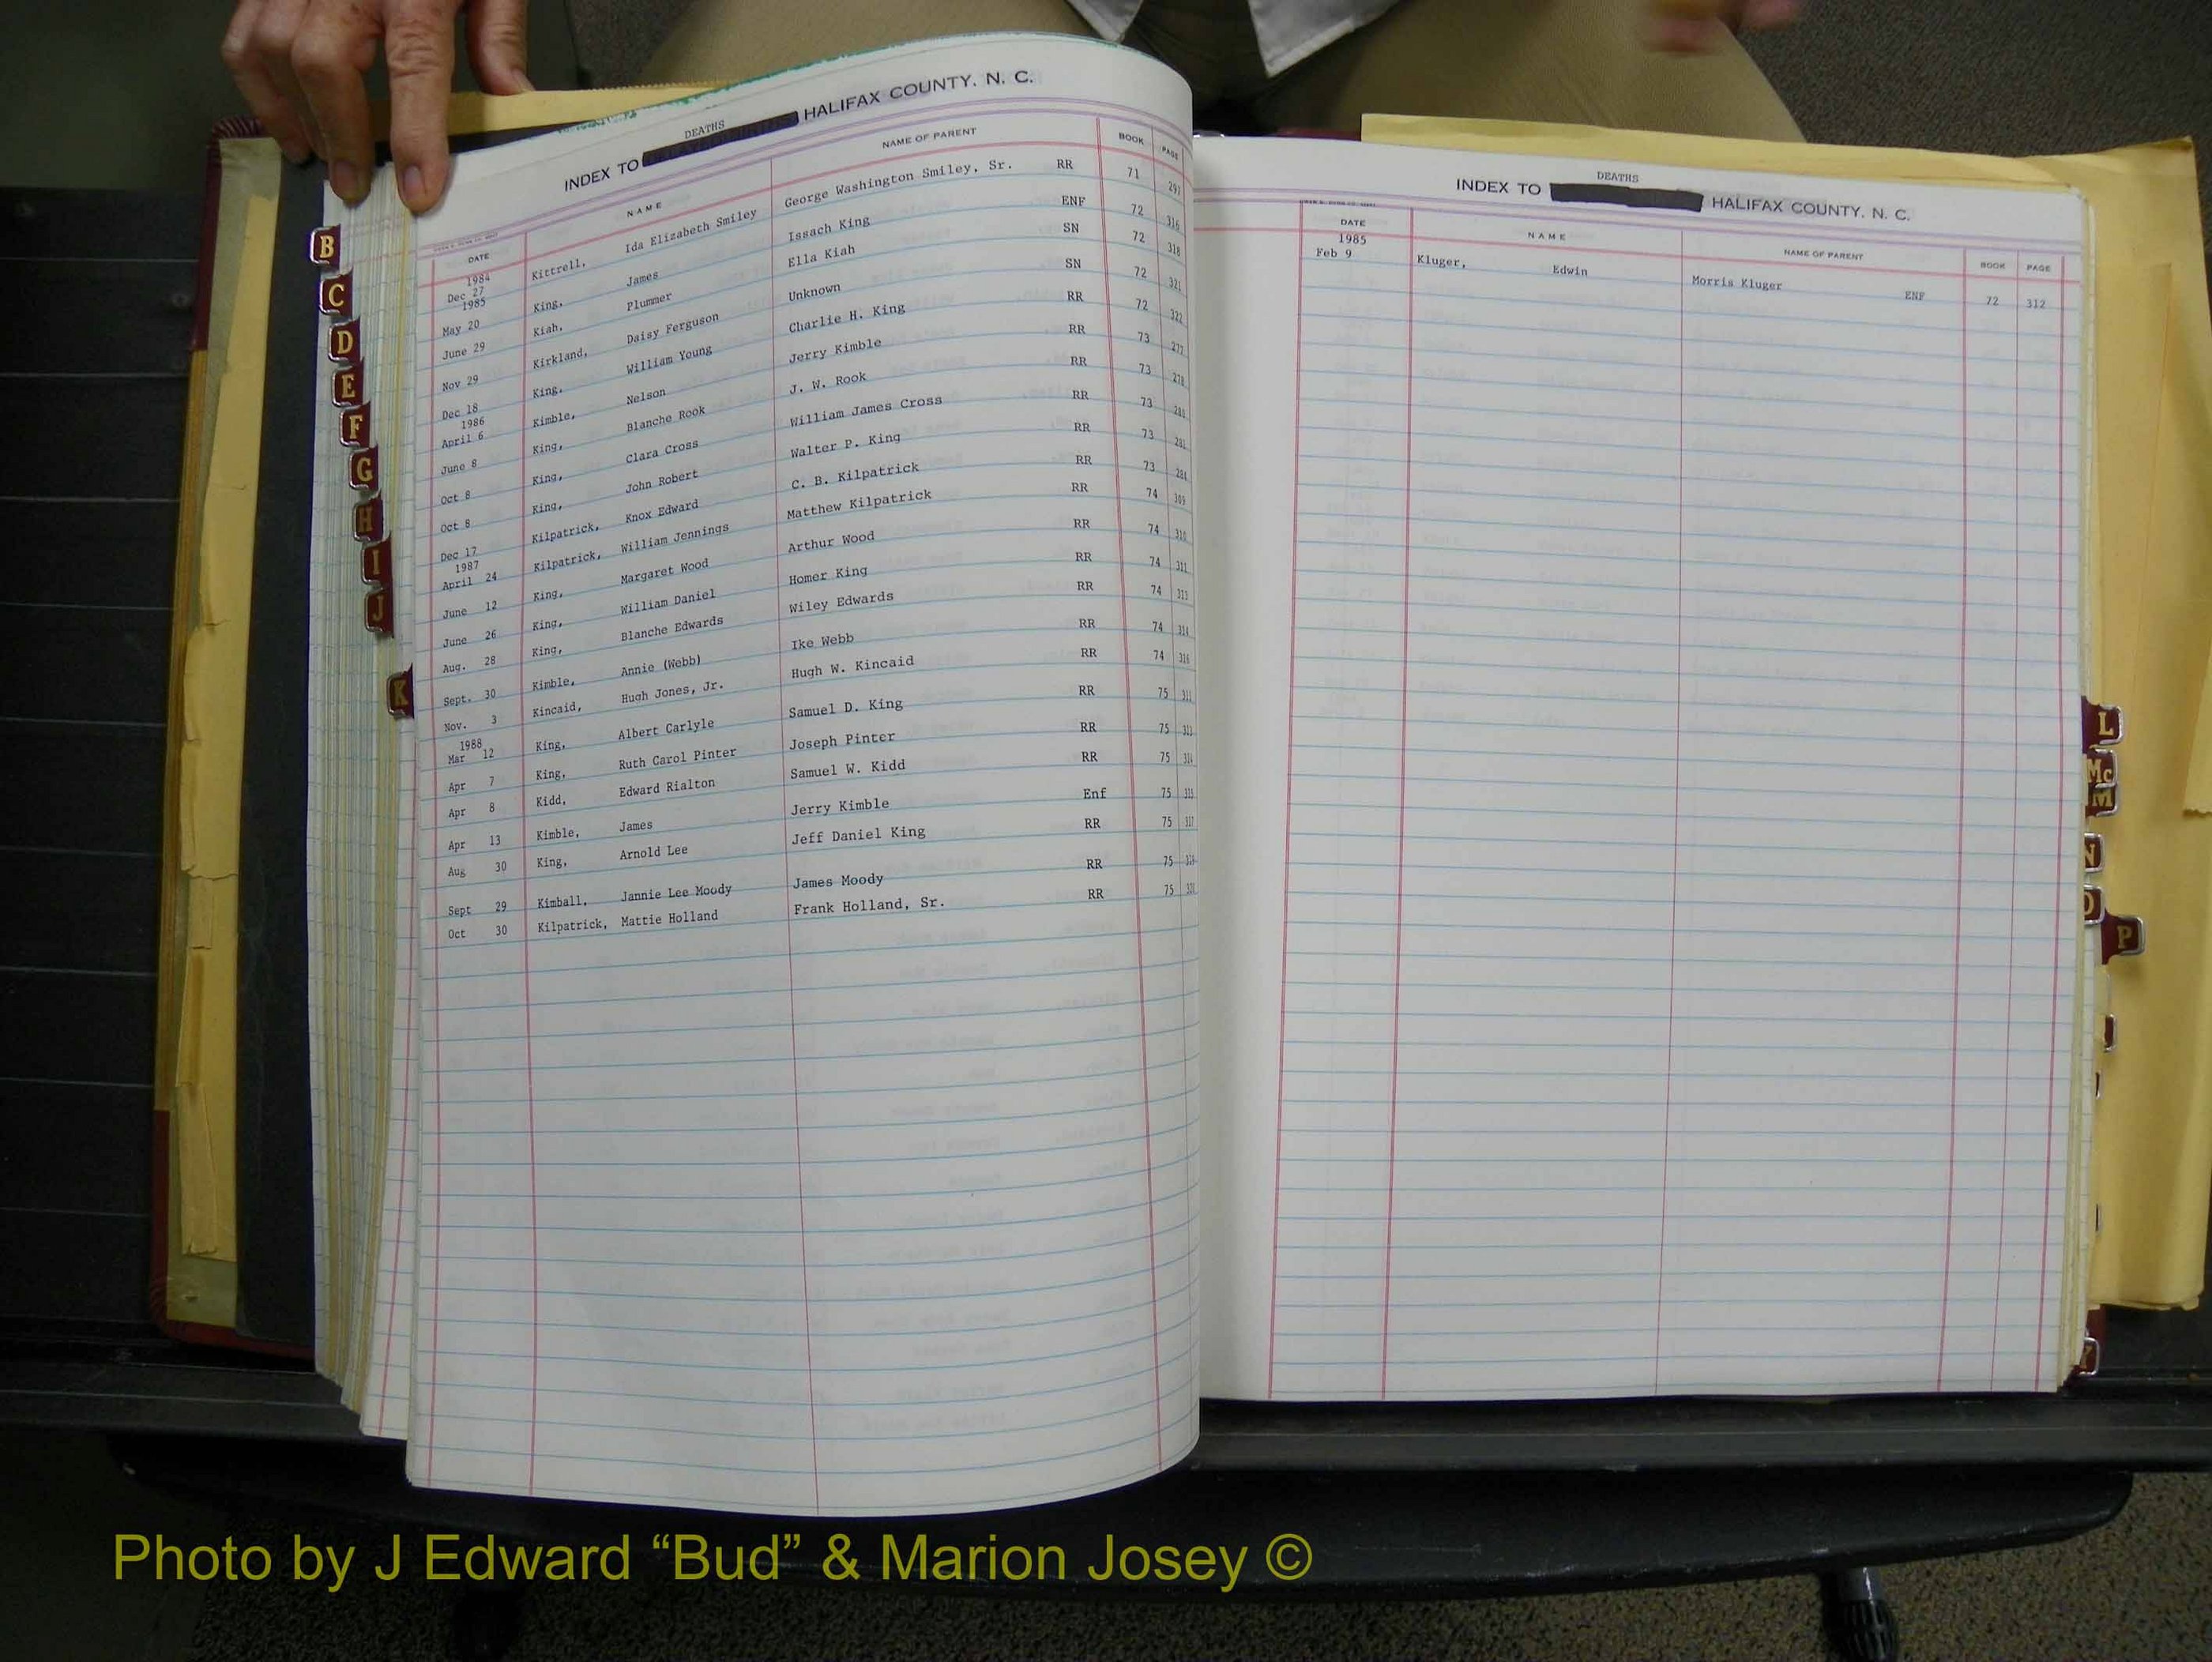 DEATHS
INDEX TO HALIFAX COUNTY, N. C.
DATE NAME NAME OF PARENT BOOK PAGE
1984
Dec 27 Kittrell, Ida Elizabeth Smiley George Washington Smiley, Sr. RR 71 297
1985
May 20 King, James Issach King ENF 72 316
June 29 Kiah, Plummer Ella Kiah SN 72 318
Nov 29 Kirkland, Daisy Ferguson Unknown SN 72 321
Dec 18 King, William Young Charlie H. King RR 72 322
1986
April 6 Kimble, Nelson Jerry Kimble RR 73 277
June 8 King, Blanche Rook J. W. Rook RR 73 278
Oct 8 King, Clara Cross William James Cross RR 73
Oct 8 King, John Robert Walter P. King RR 73
Dec 17 Kilpatrick, Knox Edward C. B. Kilpatrick RR 73
1987
April 24 Kilpatrick, William Jennings Matthew Kilpatrick RR 74 309
June 12 King, Margaret Wood Arthur Wood RR 74 310
June 26 King, William Daniel Homer King RR 74 311
Aug. 28 King, Blanche Edwards Wiley Edwards RR 74 313
Sept. 30 Kimble, Annie (Webb) Ike Webb RR 74 314
Nov. 3 Kincaid, Hugh Jones, Jr. Hugh W. Kincaid RR 74 316
1988
Mar 12 King, Albert Carlyle Samuel D. King RR 75 311
Apr 7 King, Ruth Carol Pinter Joseph Pinter RR 75 313
Apr 8 Kidd, Edward Rialton Samuel W. Kidd RR 75 314
Apr 13 Kimble, James Jerry Kimble Enf 75 315
Aug 30 King, Arnold Lee Jeff Daniel King RR 75 317
Sept 29 Kimball, Jannie Lee Moody James Moody RR 75
Oct 30 Kilpatrick, Mattie Holland Frank Holland, Sr. RR 75
DEATHS
INDEX TO HALIFAX COUNTY, N. C.
DATE NAME NAME OF PARENT BOOK PAGE
1985
Feb 9 Kluger, Edwin Morris Kluger ENF 72 312
B
C
D
E
F
G
H
I
J
K
L
Mc
M
N
O
P
Y
Photo by J Edward “Bud” & Marion Josey ©